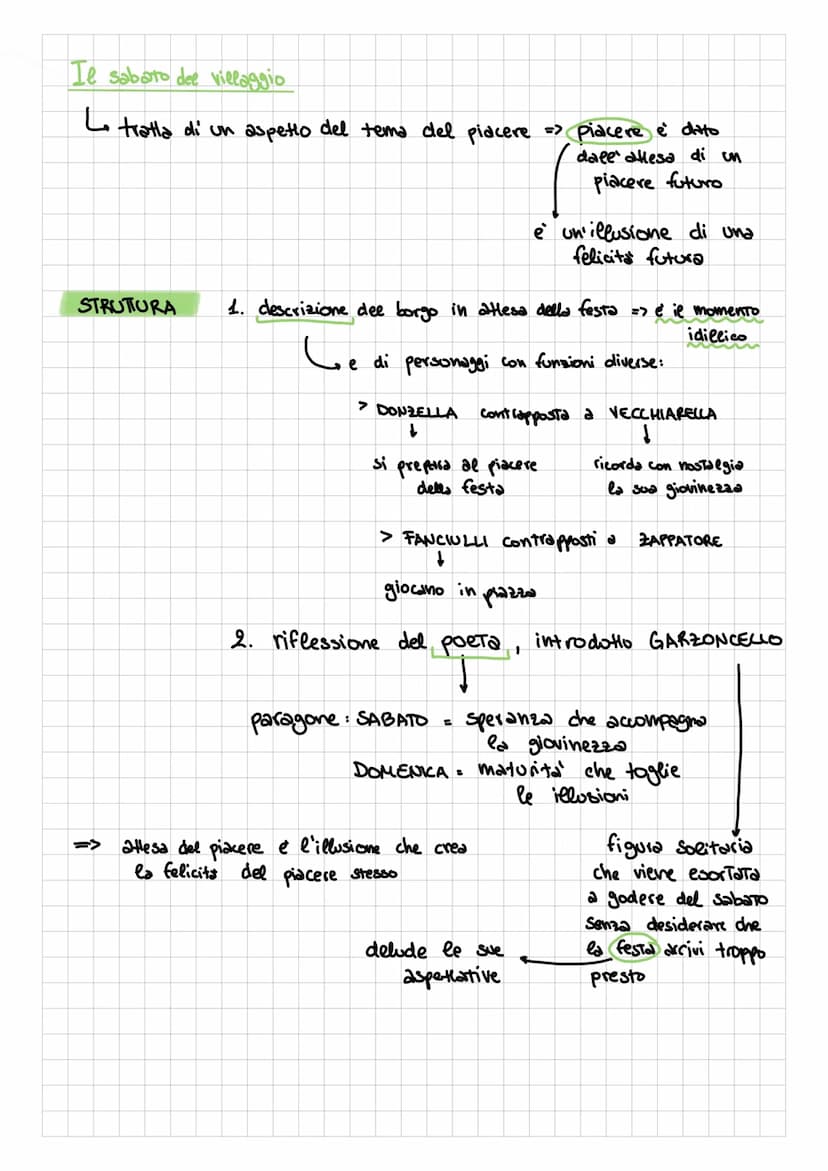 Il sabato del villaggio
↳ tratta di un aspetto del tema del piacere => piacere è dato
dall'attesa di un
piacere futuro
è un'illusione di una
felicità futura
STRUTTURA 1. descrizione del borgo in attesa della festa => è il momento
idillico
e di personaggi con funzioni diverse:
> DONZELLA contrapposta a VECCHIARELLA
↓ ↓
si prepara al piacere ricorda con nostalgia
della festa la sua giovinezza
> FANCIULLI contrapposti a ZAPPATORE
↓
giocano in piazza
2. riflessione del poeta, introdotto GARZONCELLO
paragone: SABATO = speranza che accompagna
la giovinezza
DOMENICA = maturità che toglie
le illusioni
=> attesa del piacere è l'illusione che crea
la felicità del piacere stesso
figura solitaria
che viene esortata
a godere del sabato
senza desiderare che
la festa arrivi troppo
presto
delude le sue
aspettative